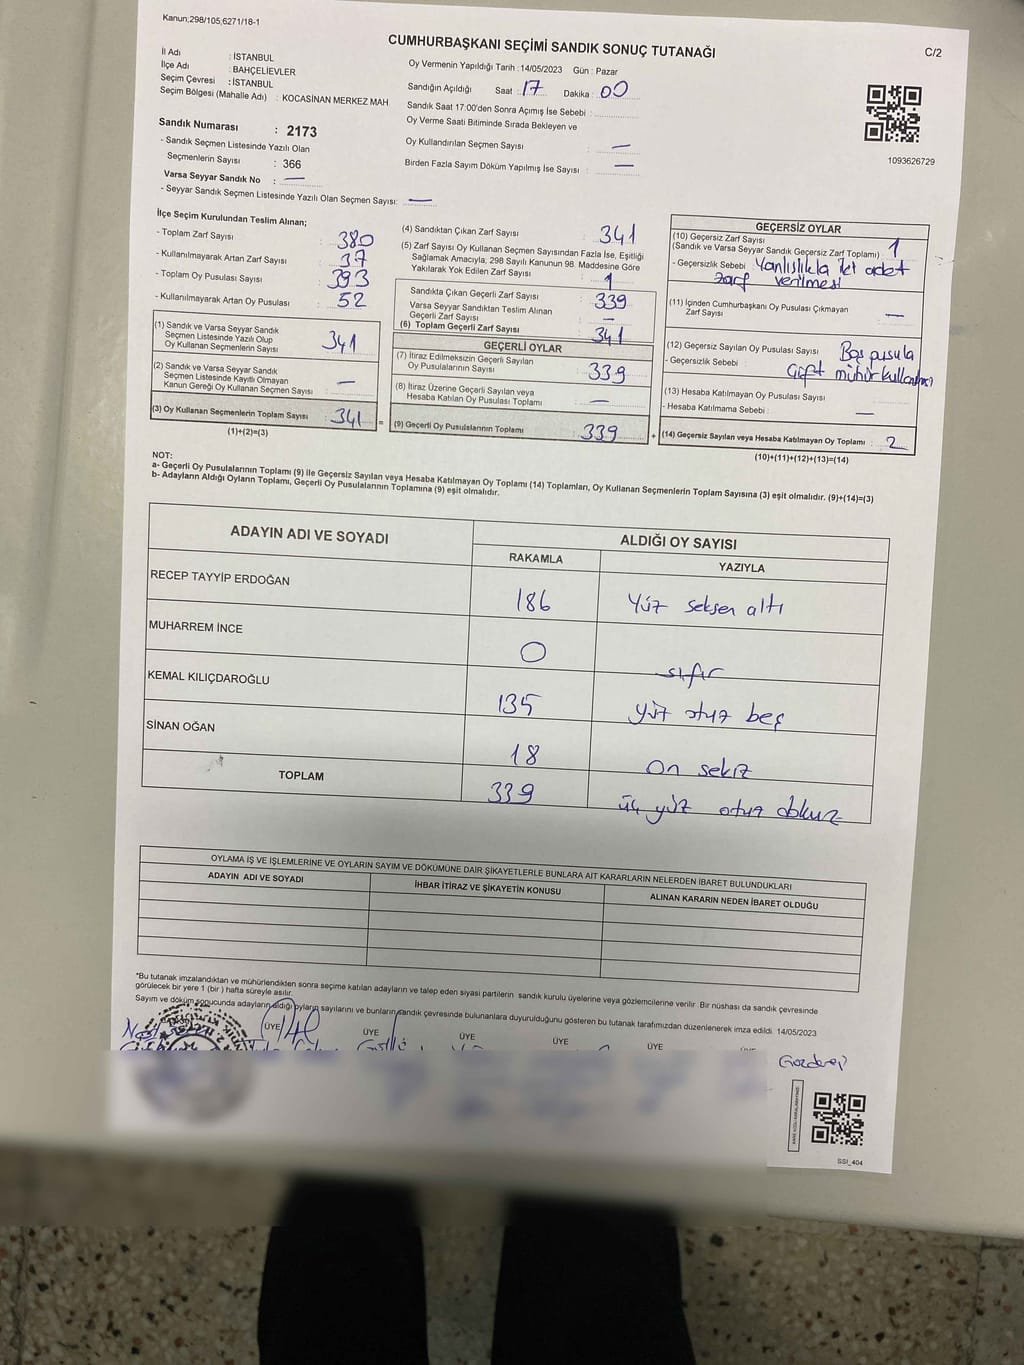 Kanun;298/105,6271/18-1
CUMHURBAŞKANI SEÇİMİ SANDIK SONUÇ TUTANAĞI
C/2
İl Adı : İSTANBUL
İlçe Adı : BAHÇELİEVLER
Seçim Çevresi : İSTANBUL
Seçim Bölgesi (Mahalle Adı) : KOCASİNAN MERKEZ MAH
Oy Vermenin Yapıldığı Tarih :14/05/2023 Gün : Pazar
Sandığın Açıldığı Saat : 17 Dakika : 00
Sandık Saat 17:00'den Sonra Açımış İse Sebebi :
Oy Verme Saati Bitiminde Sırada Bekleyen ve
Oy Kullandırılan Seçmen Sayısı : —
Birden Fazla Sayım Döküm Yapılmış İse Sayısı : —
1093626729
Sandık Numarası : 2173
- Sandık Seçmen Listesinde Yazılı Olan
Seçmenlerin Sayısı : 366
Varsa Seyyar Sandık No : —
- Seyyar Sandık Seçmen Listesinde Yazılı Olan Seçmen Sayısı: —
İlçe Seçim Kurulundan Teslim Alınan;
- Toplam Zarf Sayısı : 380
- Kullanılmayarak Artan Zarf Sayısı : 37
- Toplam Oy Pusulası Sayısı : 393
- Kullanılmayarak Artan Oy Pusulası : 52
(1) Sandık ve Varsa Seyyar Sandık
Seçmen Listesinde Yazılı Olup
Oy Kullanan Seçmenlerin Sayısı : 341
(2) Sandık ve Varsa Seyyar Sandık
Seçmen Listesinde Kayıtlı Olmayan
Kanun Gereği Oy Kullanan Seçmen Sayısı : —
(3) Oy Kullanan Seçmenlerin Toplam Sayısı : 341
(1)+(2)=(3)
(4) Sandıktan Çıkan Zarf Sayısı : 341
(5) Zarf Sayısı Oy Kullanan Seçmen Sayısından Fazla İse, Eşitliği
Sağlamak Amacıyla, 298 Sayılı Kanunun 98. Maddesine Göre
Yakılarak Yok Edilen Zarf Sayısı : 1
Sandıkta Çıkan Geçerli Zarf Sayısı : 339
Varsa Seyyar Sandıktan Teslim Alınan
Geçerli Zarf Sayısı : —
(6) Toplam Geçerli Zarf Sayısı : 341
GEÇERLİ OYLAR
(7) İtiraz Edilmeksizin Geçerli Sayılan
Oy Pusulalarının Sayısı : 339
(8) İtiraz Üzerine Geçerli Sayılan veya
Hesaba Katılan Oy Pusulası Toplamı : —
(9) Geçerli Oy Pusulalarının Toplamı : 339
GEÇERSİZ OYLAR
(10) Geçersiz Zarf Sayısı
(Sandık ve Varsa Seyyar Sandık Geçersiz Zarf Toplamı) : 1
- Geçersizlik Sebebi : Yanlışlıkla iki adet
zarf verilmesi
(11) İçinden Cumhurbaşkanı Oy Pusulası Çıkmayan
Zarf Sayısı : —
(12) Geçersiz Sayılan Oy Pusulası Sayısı : Boş pusula
- Geçersizlik Sebebi : Çift mühür kullanılması
(13) Hesaba Katılmayan Oy Pusulası Sayısı :
- Hesaba Katılmama Sebebi : —
(14) Geçersiz Sayılan veya Hesaba Katılmayan Oy Toplamı : 2
(10)+(11)+(12)+(13)=(14)
NOT:
a- Geçerli Oy Pusulalarının Toplamı (9) ile Geçersiz Sayılan veya Hesaba Katılmayan Oy Toplamı (14) Toplamları, Oy Kullanan Seçmenlerin Toplam Sayısına (3) eşit olmalıdır. (9)+(14)=(3)
b- Adayların Aldığı Oyların Toplamı, Geçerli Oy Pusulalarının Toplamına (9) eşit olmalıdır.
ADAYIN ADI VE SOYADI
ALDIĞI OY SAYISI
RAKAMLA YAZIYLA
RECEP TAYYİP ERDOĞAN 186 Yüz seksen altı
MUHARREM İNCE 0 sıfır
KEMAL KILIÇDAROĞLU 135 yüz otuz beş
SİNAN OĞAN 18 on sekiz
TOPLAM 339 üç yüz otuz dokuz
OYLAMA İŞ VE İŞLEMLERİNE VE OYLARIN SAYIM VE DÖKÜMÜNE DAİR ŞİKAYETLERLE BUNLARA AİT KARARLARIN NELERDEN İBARET BULUNDUKLARI
ADAYIN ADI VE SOYADI İHBAR İTİRAZ VE ŞİKAYETİN KONUSU ALINAN KARARIN NEDEN İBARET OLDUĞU
*Bu tutanak imzalandıktan ve mühürlendikten sonra seçime katılan adayların ve talep eden siyasi partilerin sandık kurulu üyelerine veya gözlemcilerine verilir. Bir nüshası da sandık çevresinde
görülecek bir yere 1 (bir ) hafta süreyle asılır.
Sayım ve döküm sonucunda adayların aldığı oyların sayılarını ve bunların sandık çevresinde bulunanlara duyurulduğunu gösteren bu tutanak tarafımızdan düzenlenerek imza edildi. 14/05/2023
ÜYE ÜYE ÜYE ÜYE ÜYE
SSI_404